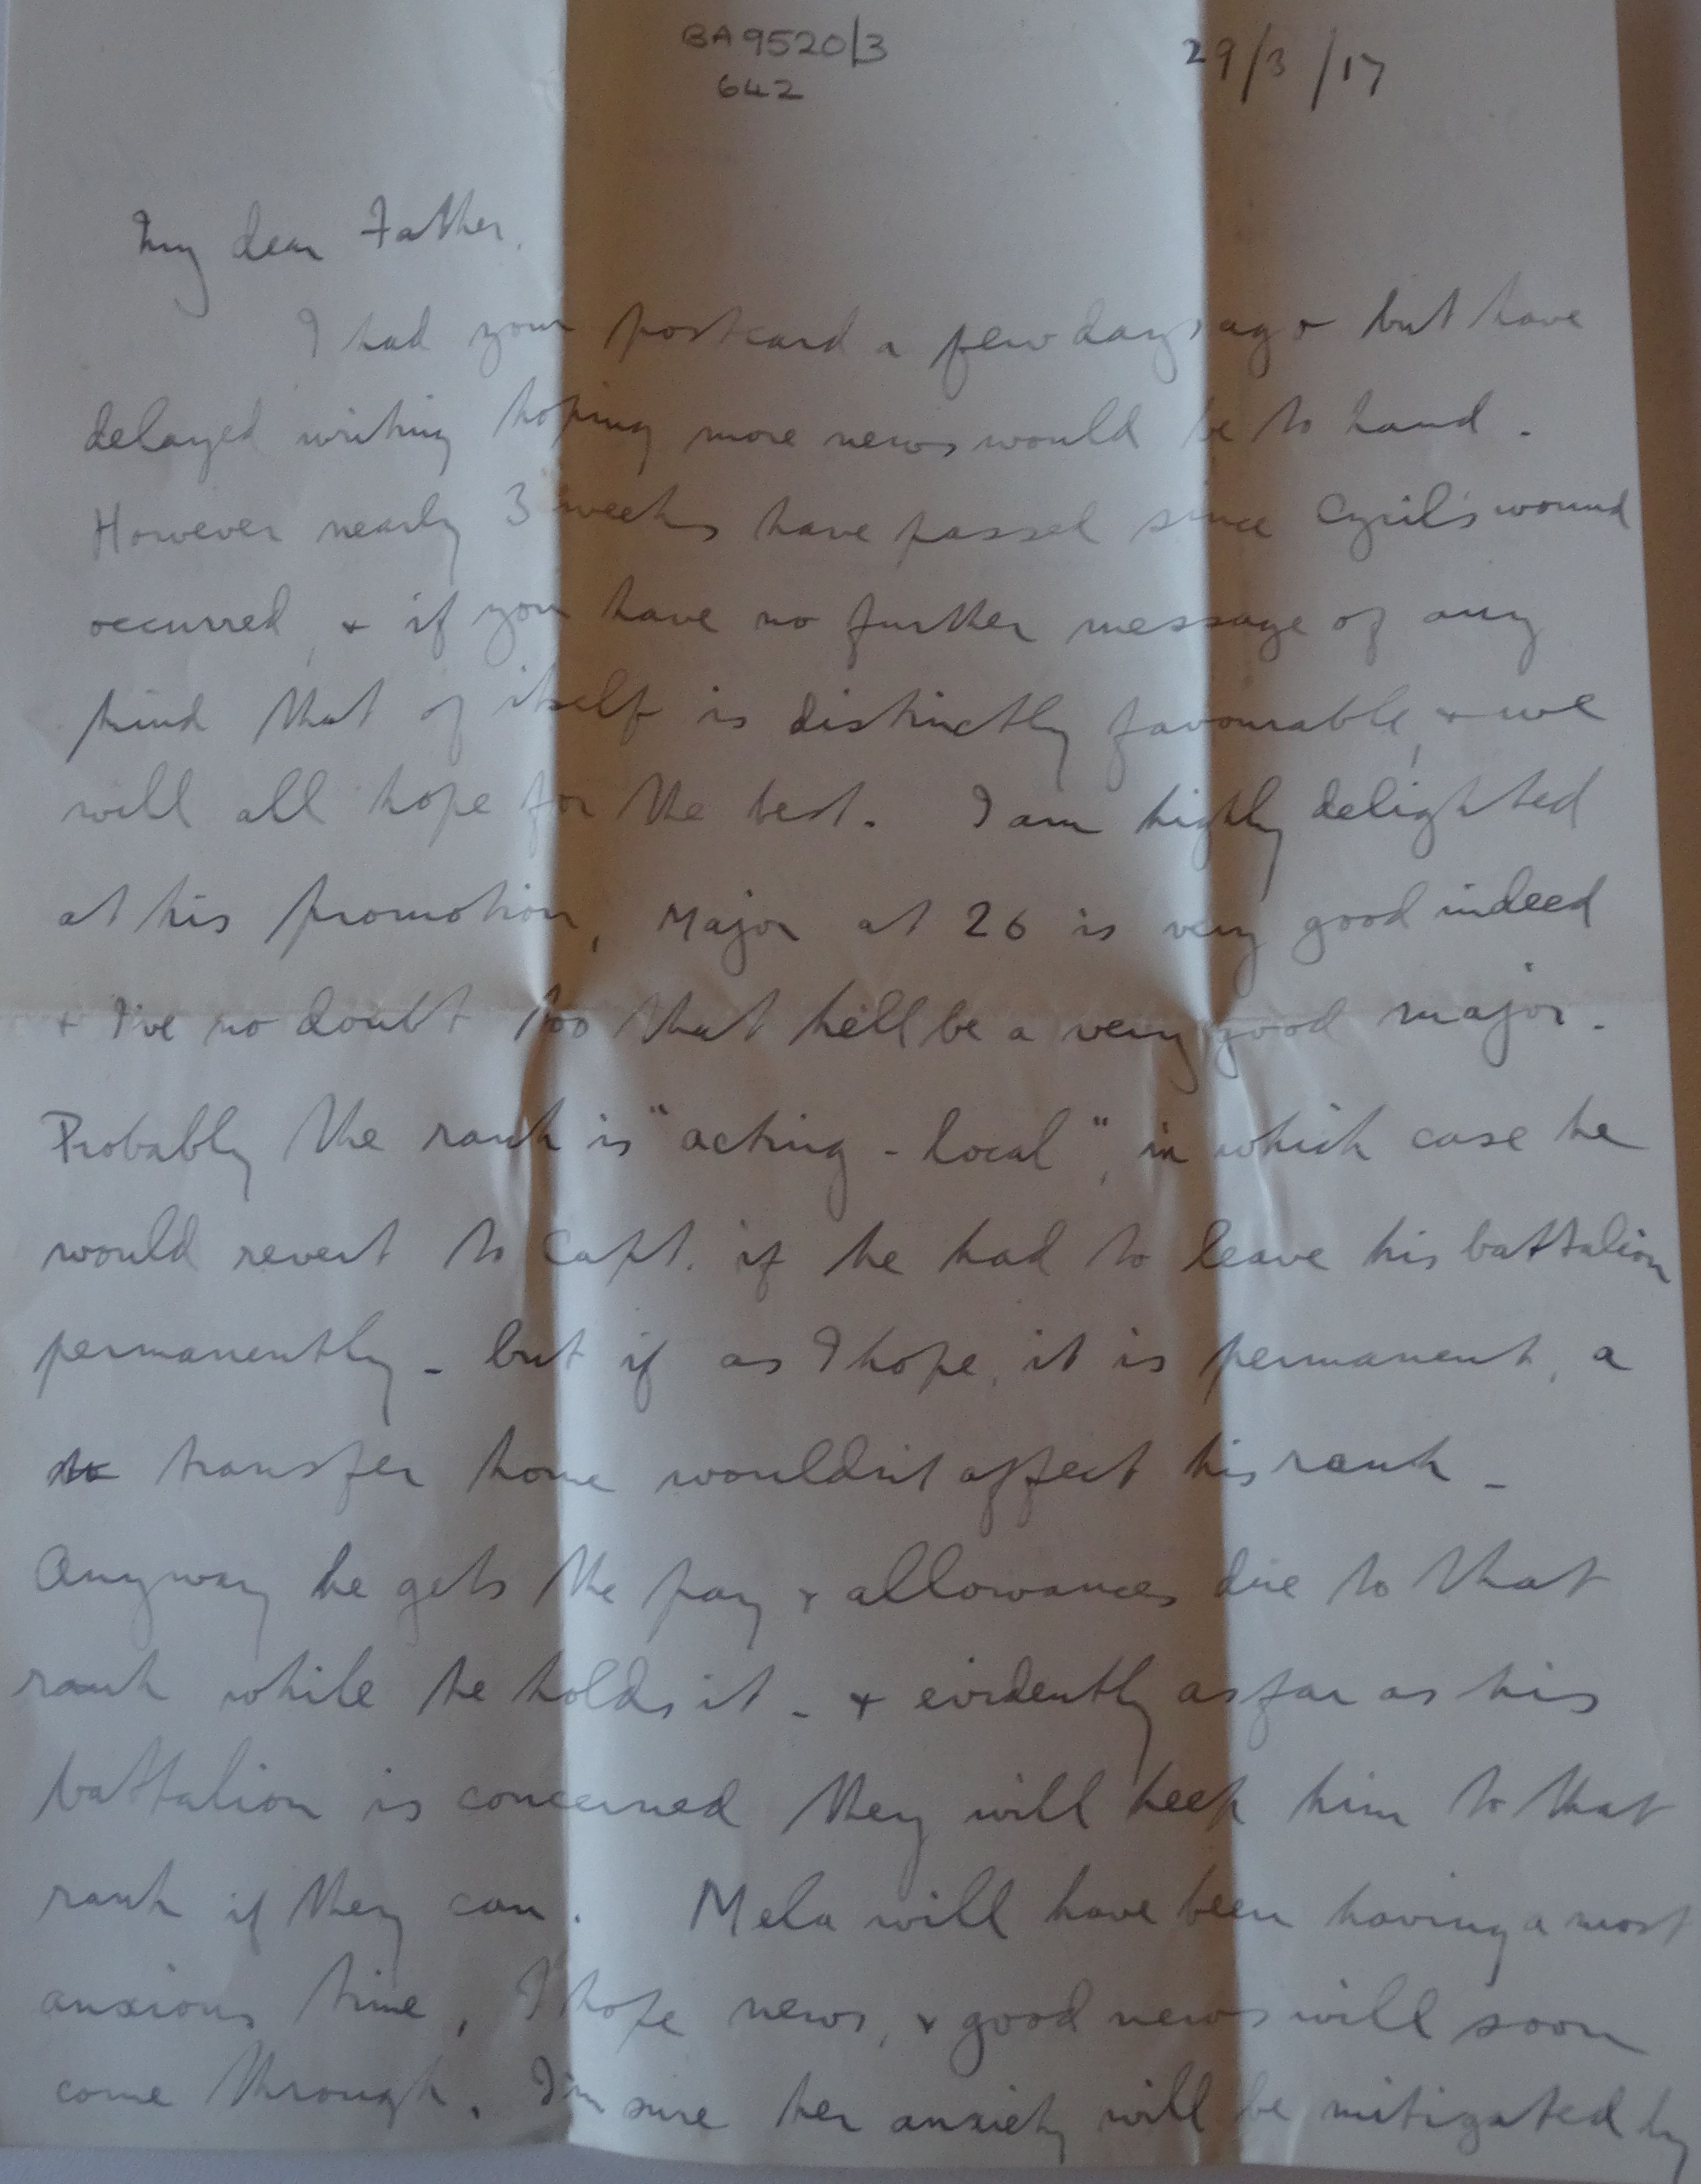 BA9520/3
642
29/3/17
My dear Father,
I had your postcard a few days ago but have
delayed writing hoping more news would be to hand.
However nearly 3 weeks have passed since Cyril's wound
occurred, + if you have no further message of any
kind that of itself is distinctly favourable, + we
will all hope for the best. I am highly delighted
at his promotion, Major at 26 is very good indeed
+ I've no doubt too that he'll be a very good major.
Probably the rank is "acting - local", in which case he
would revert to Capt. if he had to leave his battalion
permanently - but if as I hope, it is permanent, a
transfer home wouldn't affect his rank -
Anyway he gets the pay + allowances due to that
rank while he holds it - + evidently as far as his
battalion is concerned they will keep him to that
rank if they can. Mela will have been having a most
anxious time, I hope news, + good news will soon
come through. I'm sure her anxiety will be mitigated by